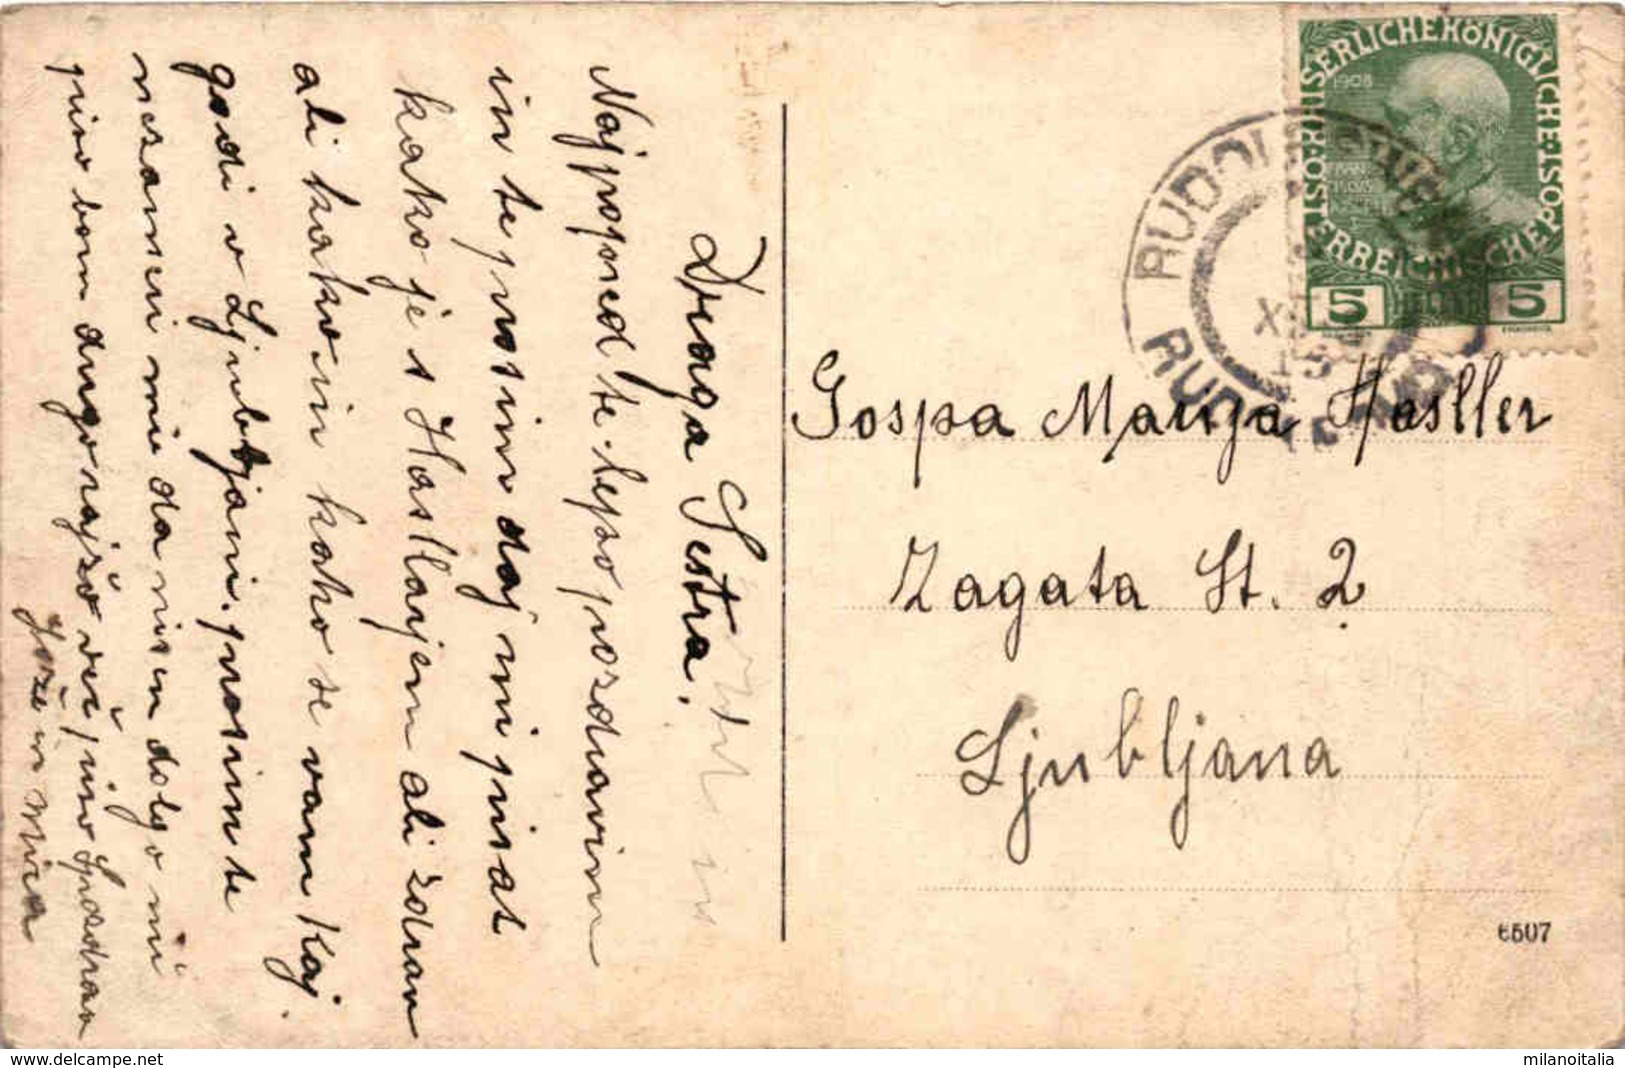 Draga Sestra.
Najpopred te lepo pozdravim
in te prosim daj mi pisat
kako je s Hasllarjem ali zdrav
ali kakoin kako se vam kaj
godi v Ljubljani. prosim te
nezameri mi da nisem dolgo mi
piso bom dugorajšo več piso Spozdrav
Jože in Mica
KAISERLICHE KÖNIGLICHE ÖSTERREICHISCHE POST
1908
5 HELLER 5
RUDOLFSWERT
RUDOLFOVO
Gospa Marija Hasller
Zagata St. 2
Ljubljana
6507
www.delcampe.net
milanoitalia